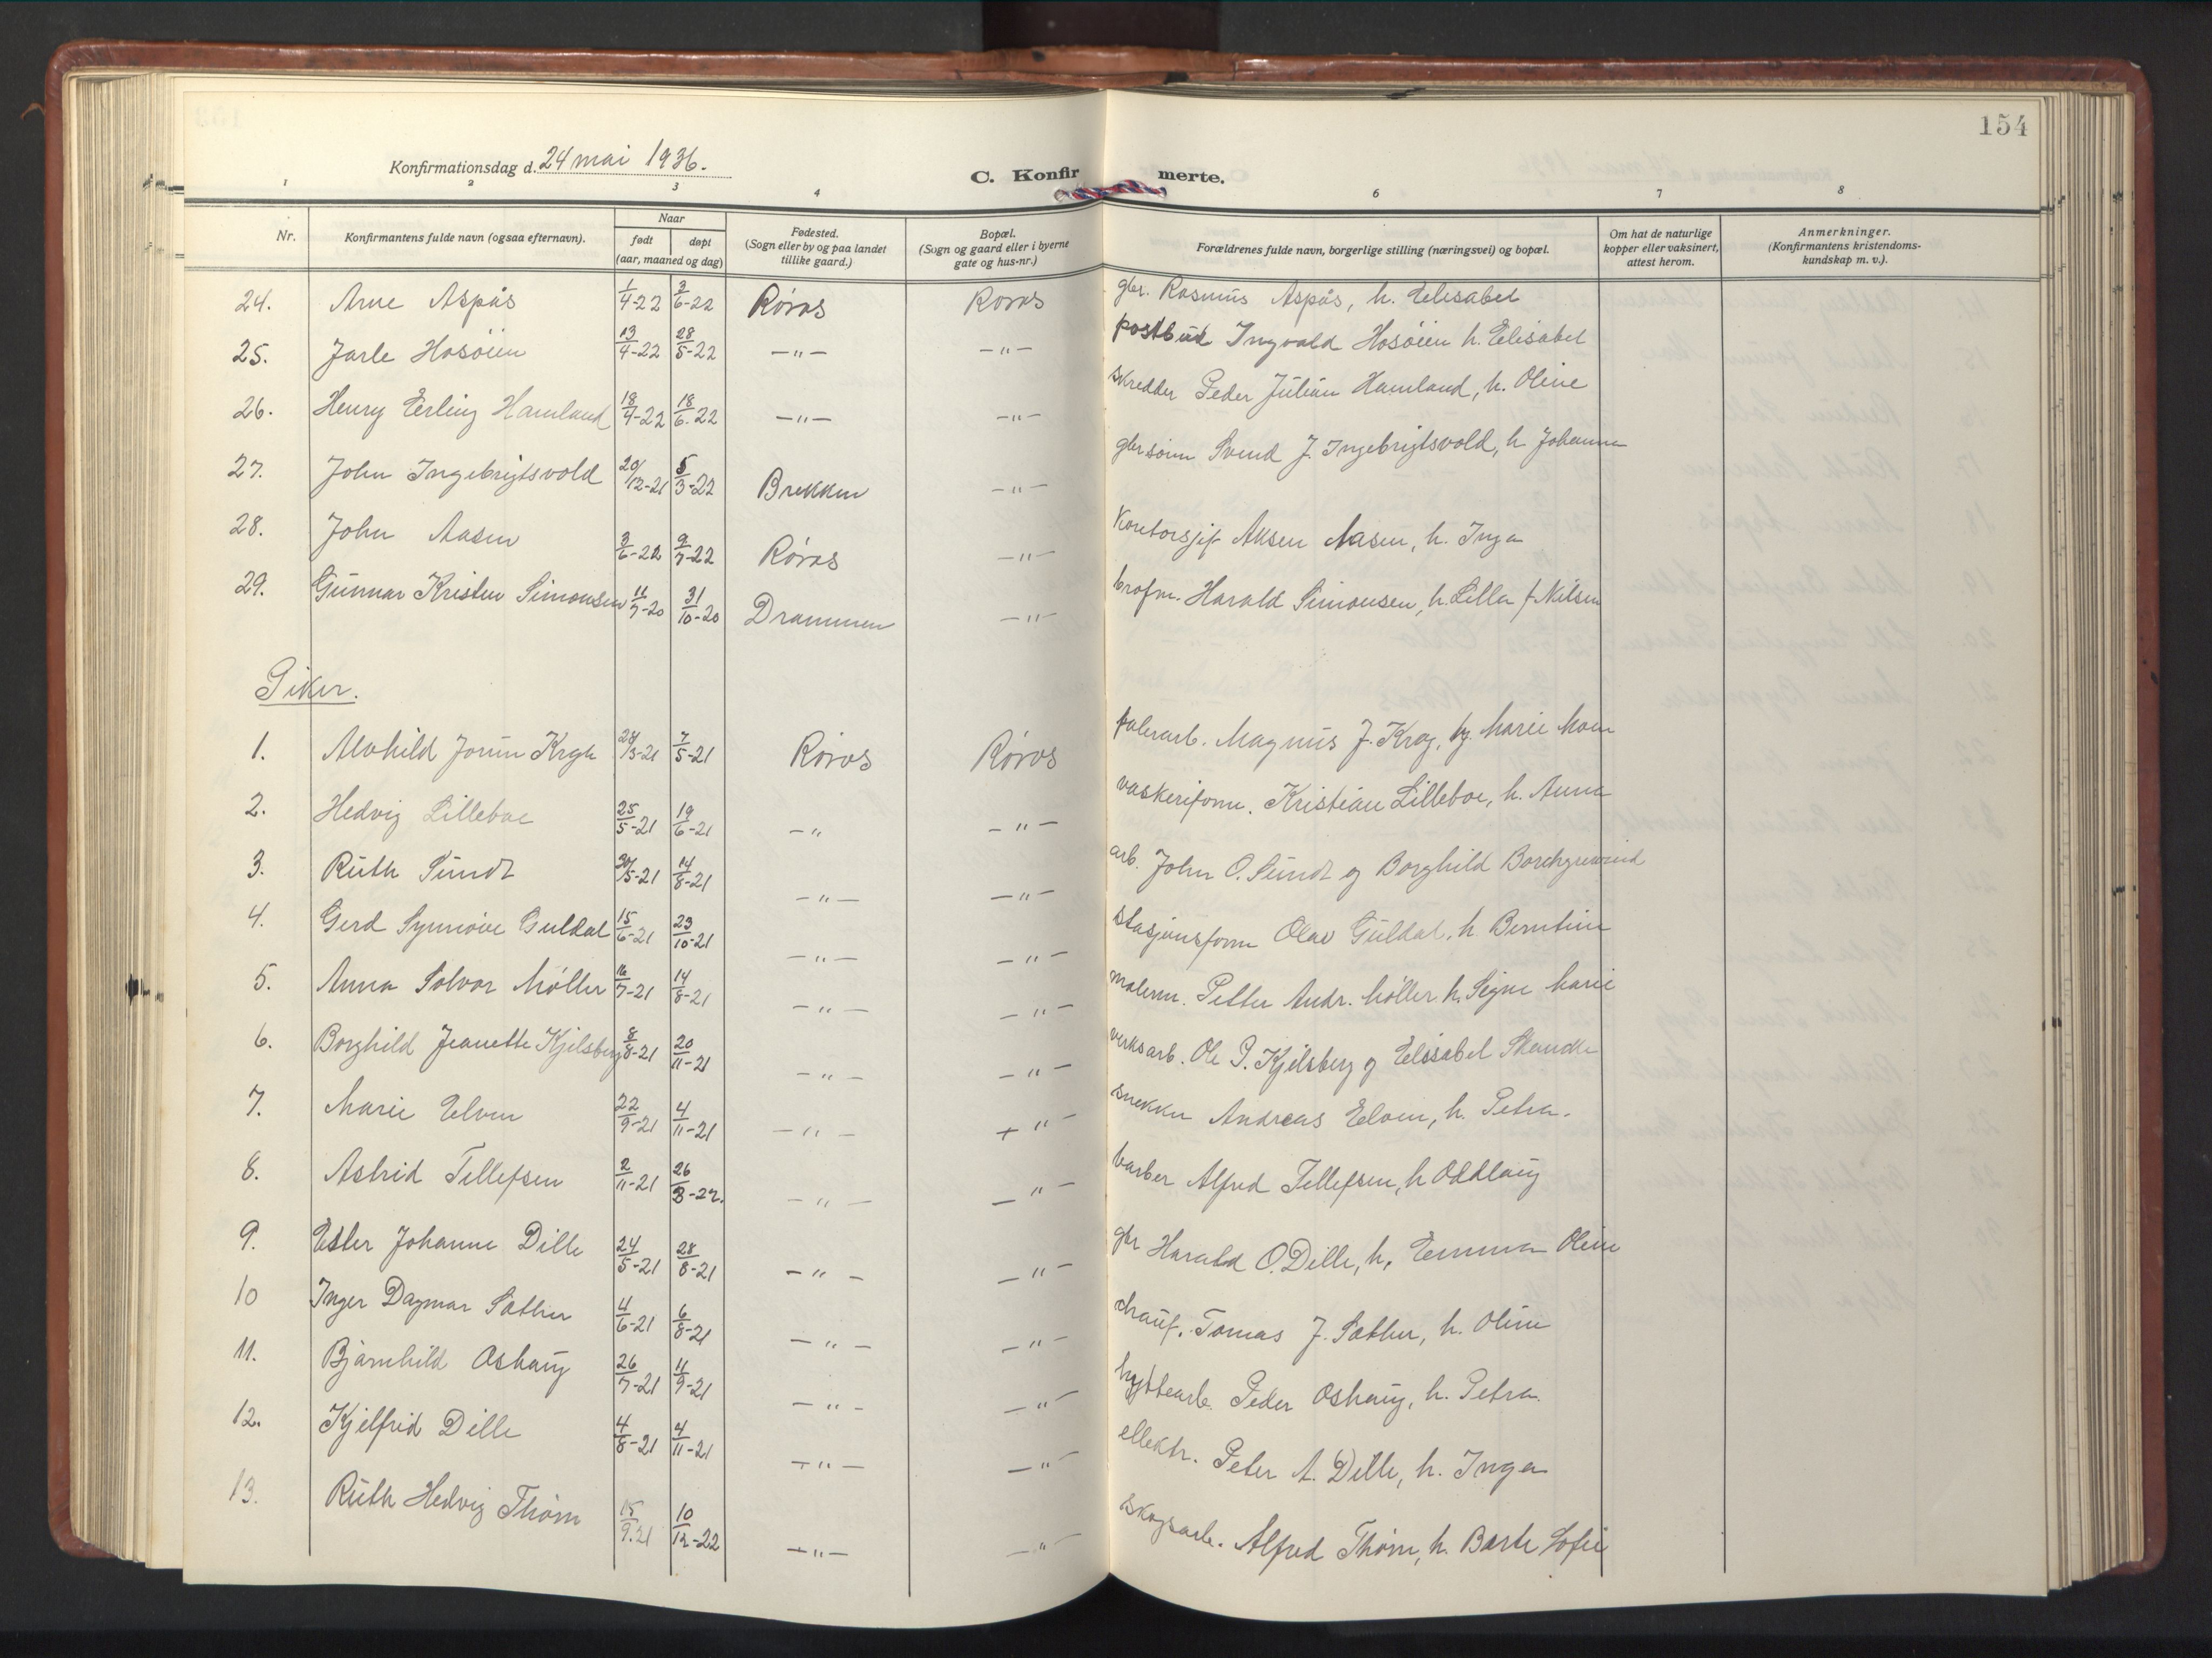 154
Konfirmationsdag d. 24 mai 1936.
C. Konfirmerte.
1 2 3 4 6 7 8
Nr. Konfirmantens fulde navn (ogsaa efternavn). Naar født døpt (aar, maaned og dag) Fødested. (Sogn eller by og paa landet tillike gaard.) Bopæl. (Sogn og gaard eller i byerne gate og hus-nr.) Forældrenes fulde navn, borgerlige stilling (næringsvei) og bopæl. Om hat de naturlige kopper eller vaksinert, attest herom. Anmerkninger. (Konfirmantens kristendoms-kundskap m. v.).
24. Arne Aspås 1/4-22 3/6-22 Røros Røros gbr. Rasmus Aspås, h. Elisabet
25. Jarle Hosøien 13/4-22 28/5-22 -"- -"- postbud Ingvald Hosøien h. Elisabet
26. Henry Erling Hamland 18/4-22 18/6.22 -"- -"- skredder Peder Julian Hamland, h. Oline
27. John Ingebrigtsvold 20/12-21 5/3-22 Brekken -"- gbrsønn Svend J. Ingebrigtsvold, h Johanna
28. John Aasen 3/6-22 9/7-22 Røros -"- Aksen Aasen, h. Inga
29. Gunnar Kristen Simonsen 11/7-20 31/10-20 Drammen -"- Harald Simonsen, h. Lilla f Nilsen
Piker.
1. Alvhild Jorun Krog 28/3-21 7/5-21 Røros Røros Magnus J. Krog, og Marie Moen
2. Hedvig Lilleboe 25/5-21 19/6-21 -" -"- vaskeriform. Kristian Lilleboe, h. Anna
3. Ruth Sundt 30/5-21 14/8-21 -"- -"- arb. John O. Sundt og Borghild Borchgrevind
4. Gerd Synnøve Guldal 15/6-21 23/10-21 -"- -"- stasjonsform Olav Guldal, h. Berntine
5. Anna Solvor Møller 16/7-21 14/8-21 -"- -"- malerm. Petter Andr. Møller h. Signe Marie
6. Borghild Jeanette Kjelsberg 8/8-21 20/11-21 -"- -"- verksarb. Ole P. Kjelsberg og Elisabet Skancke
7. Marie Elven 22/9-21 4/11-21 -"- -"- snekker Andreas Elven, h. Petra.
8. Astrid Tellefsen 2/11-21 26/3-22. -"- -"- barber Alfred Tellefsen, h Oddlaug
9. Ester Johanne Dille 24/5-21 28/8-21 -"- -"- gbr Harald O. Dille, h. Emma Oline
10 Inger Dagmar Sæther 4/6-21 6/8-21 -"- -"- chauf. Tomas J. Sæther, h. Oline
11. Bjarnhild Oshaug 26/7-21 4/9-21 -"- -"- hyttearb. Peder Oshaug, h. Petra.
12. Kjelfrid Dille 4/8-21 4/11-21 -"- -"- ellektr. Peter A. Dille, h. Inga
13. Ruth Hedvig Thorn 15/9.21 10/12-22 -"- -"- skogsarb. Alfred Thorn, h. Sofie